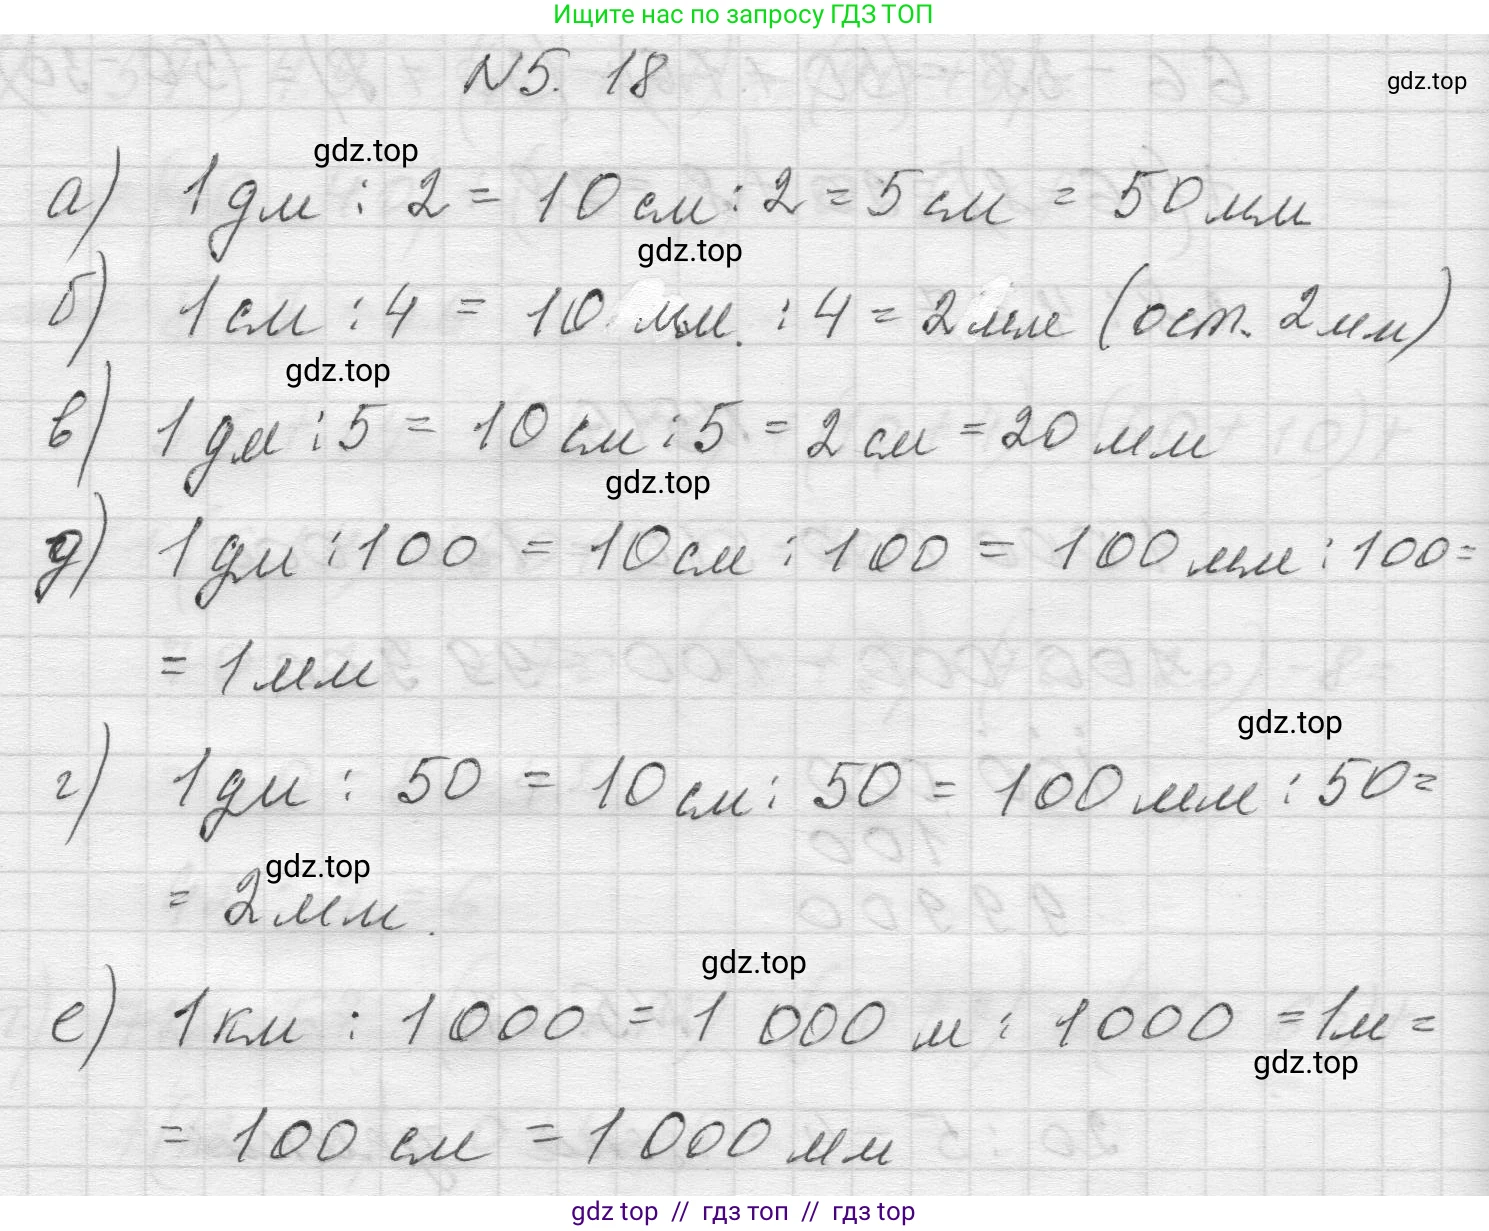 Ищите нас по запросу ГДЗ ТОП
N5. 18
gdz.top
gdz.top
а) 1 дм : 2 = 10 см : 2 = 5 см = 50 мм
gdz.top
б) 1 см : 4 = 10 мм. : 4 = 2 мм (ост. 2 мм)
gdz.top
в) 1 дм : 5 = 10 см : 5 = 2 см = 20 мм
gdz.top
д) 1 дм : 100 = 10 см : 100 = 100 мм : 100 =
= 1 мм
gdz.top
г) 1 дм : 50 = 10 см : 50 = 100 мм : 50 =
gdz.top
= 2 мм.
gdz.top
е) 1 км : 1000 = 1 000 м : 1000 = 1 м =
gdz.top
= 100 см = 1 000 мм
gdz top // гдз топ // гдз top